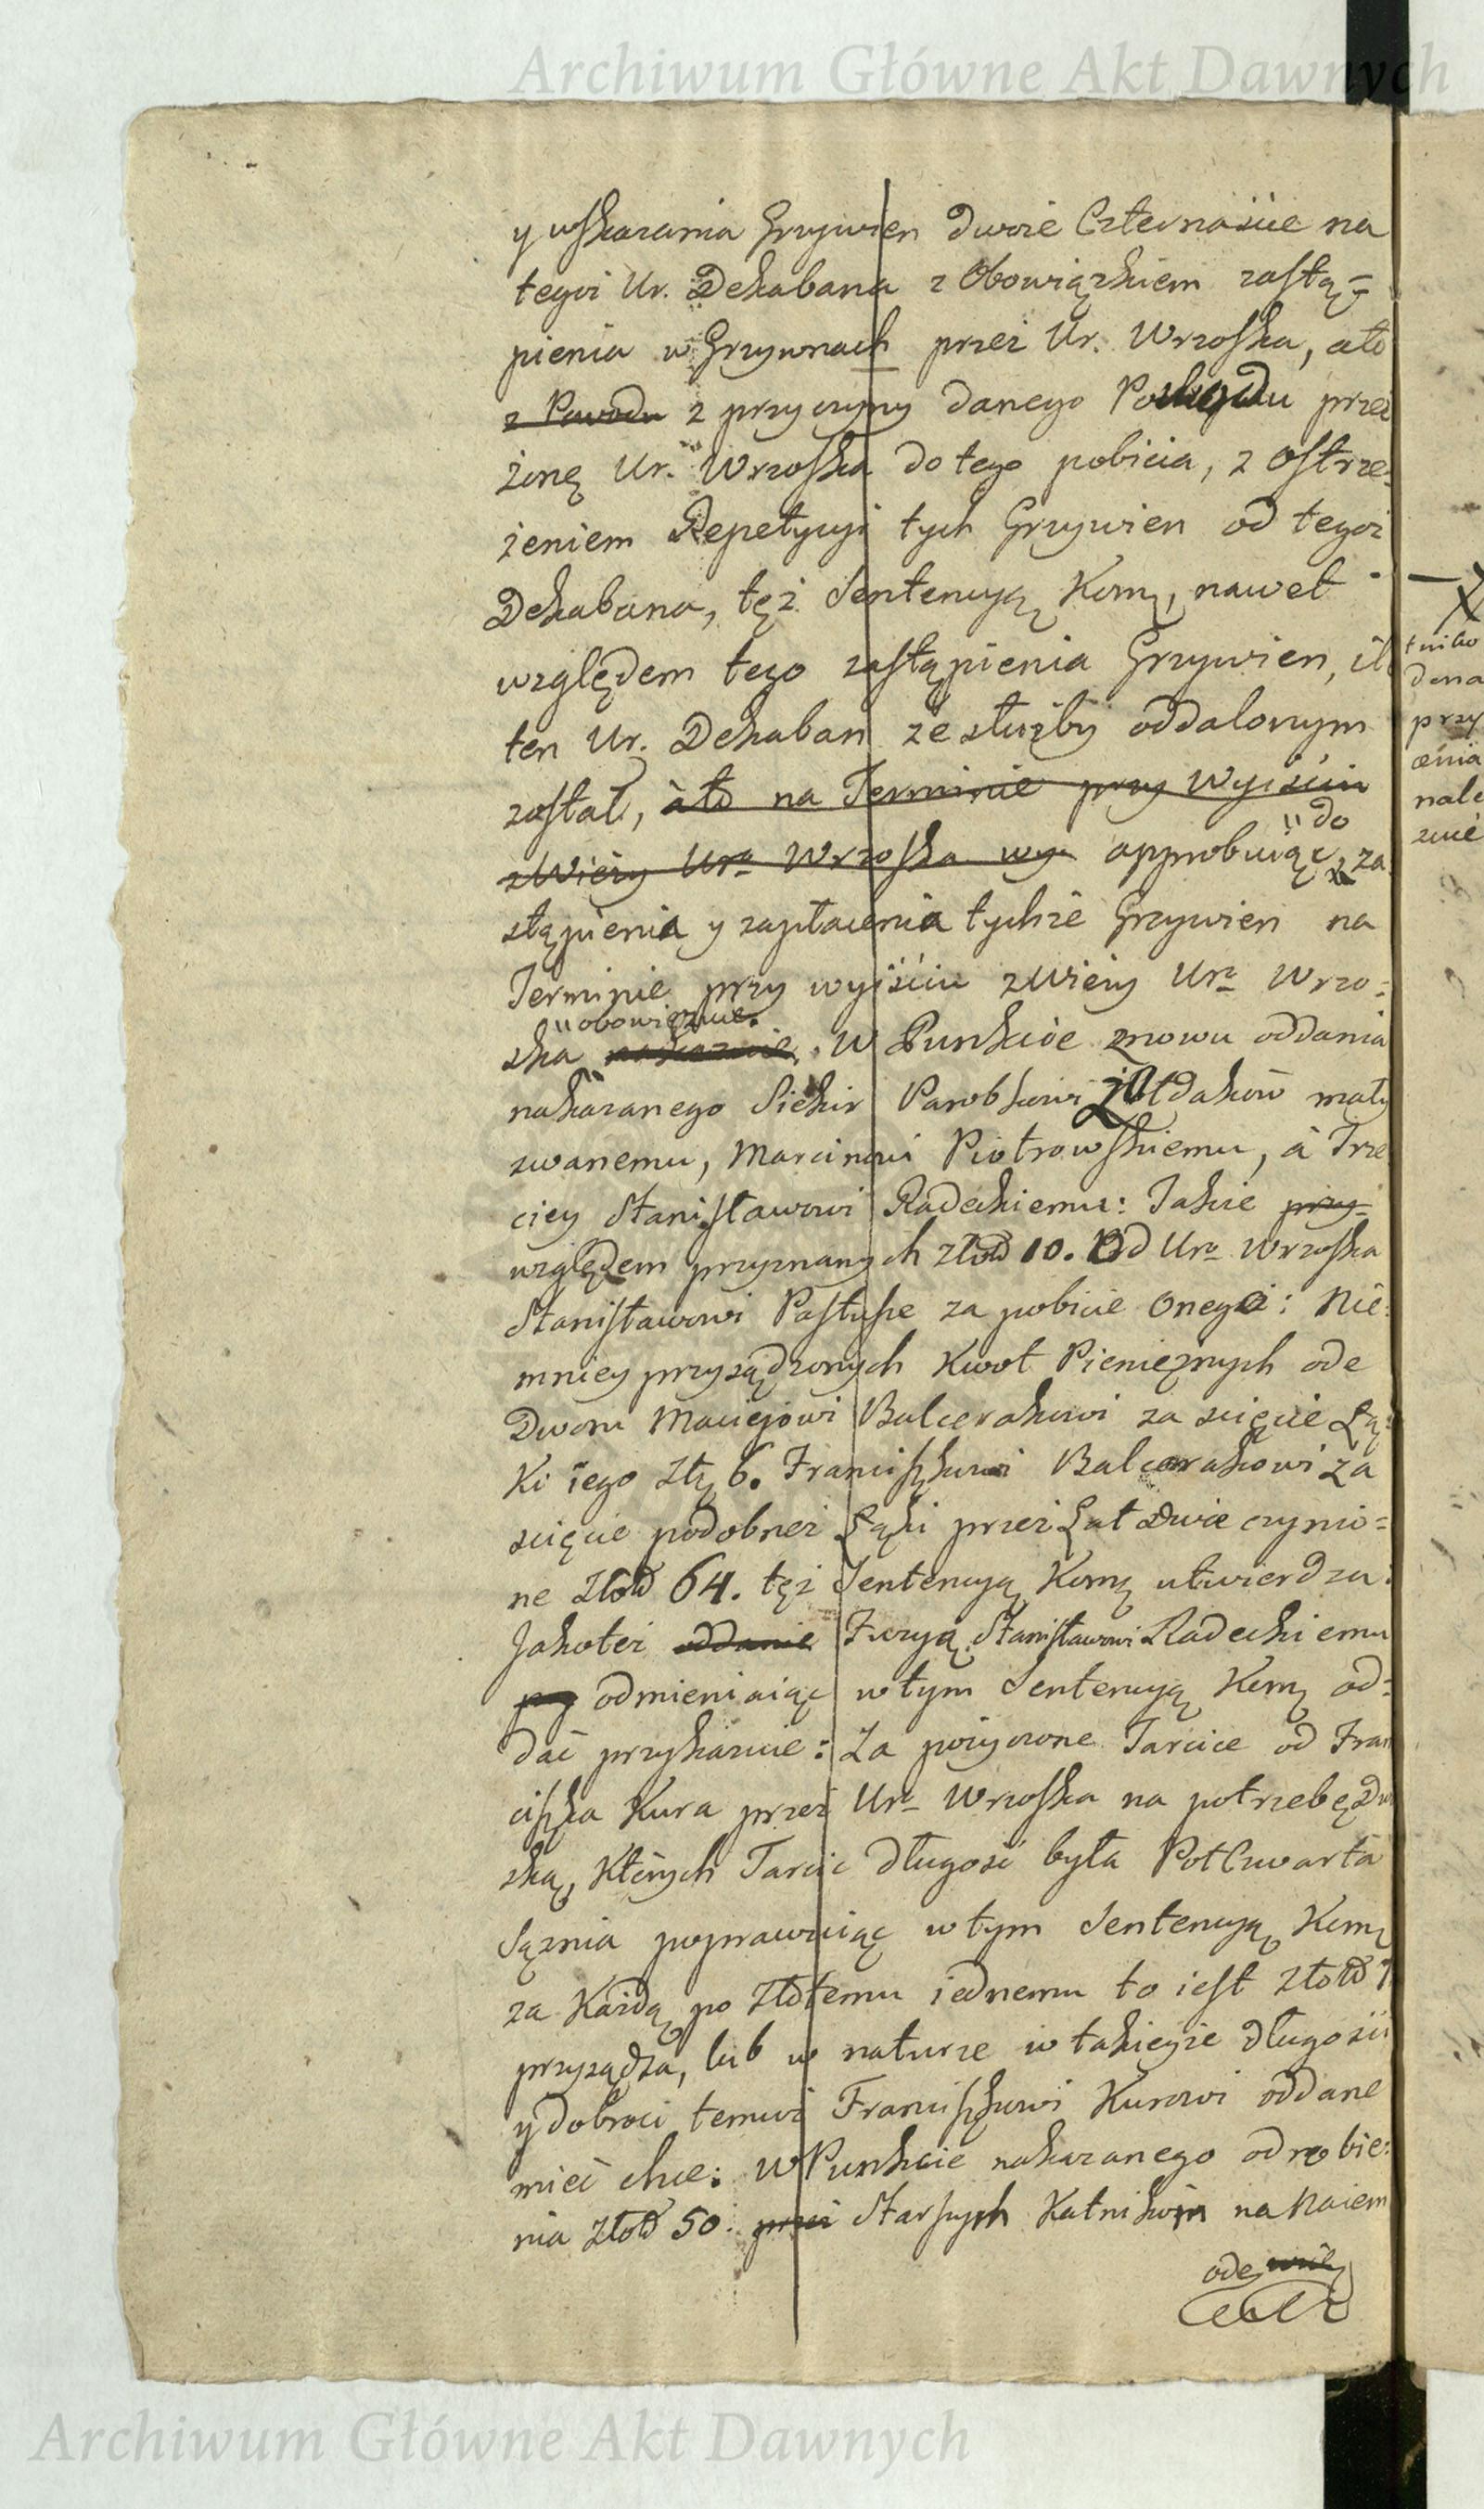 Archiwum Główne Akt Dawnych
y wskazania Grzywien dwóie Czternaście na
tegoż Ur. Dekabana z Obowiązkiem zastą=
pienia w Grzywnach przez Ur. Wrzoska, ato
z Powodu z przyczyny danego Powodu przez
żonę Ur. Wrzoska do tego pobicia, z Ostrze=
żeniem Repetycyi tych Grzywien od tegoż
Dekabana, tęż Sentencyą Komą, nawet
względem tego zastąpienia Grzywien, il
ten Ur. Dekaban ze służby oddalonym
został, àto na Terminie przy Wyiściu
z Wieży Urº Wrzoska wy approbuiąc, do za
stąpienia y zapłacenia tychże Grzywien na
Terminie przy wyiściu z Wieży Urº Wrzo=
ska nakazuie obowięzuie. W Punkcie znowu oddania
nakazanego Siekir Parobkowi Żołdaków mały
zwanemu, Marcinowi Piotrowskiemu, à Trze
ciey Stanisławowi Radeckiemu: Takie przy=
względem przyznanych Złotd 10. Od Urº Wrzoska
Stanisławowi Pastuse za pobicie Onegoż: Nie=
mniey przysądzonych Kwot Pieniężnych ode
Dworu Maciejowi Balcerakowi za scięcie Łą=
Ki iego Złł 6. Franciszkowi Balcerakowi za
scięcie podobneż Łąki przez Lat Dwie czynio=
ne Złotd 64. tęż Sentencyą Komą utwierdza:
Jakoteż oddanie Fuzyą Stanisławowi Radeckiemu
przy odmieniaiąc w tym Sentencyą Komą od=
dać przykazuie: Za pożyczone Tarcice od Fran
ciszka Kura przez Urº Wrzoska na potrzebę Dw
ską, Których Tarcic długość była Pół Czwarta
Sążnia poprawuiąc w tym Sentencyą Komą
za Każdą po Złotemu iednemu to iest Złotd 7
przysądza, lub w naturze w takieyże długości
y dobroci temuż Franciszkowi Kurowi oddane
mieć chce: W Punkcie nakazanego odrobie=
nia Złotd 50. przez Starszych Kątników na Naiem
ode
tniko
dona
przy
cenia
nale
zuie
Archiwum Główne Akt Dawnych